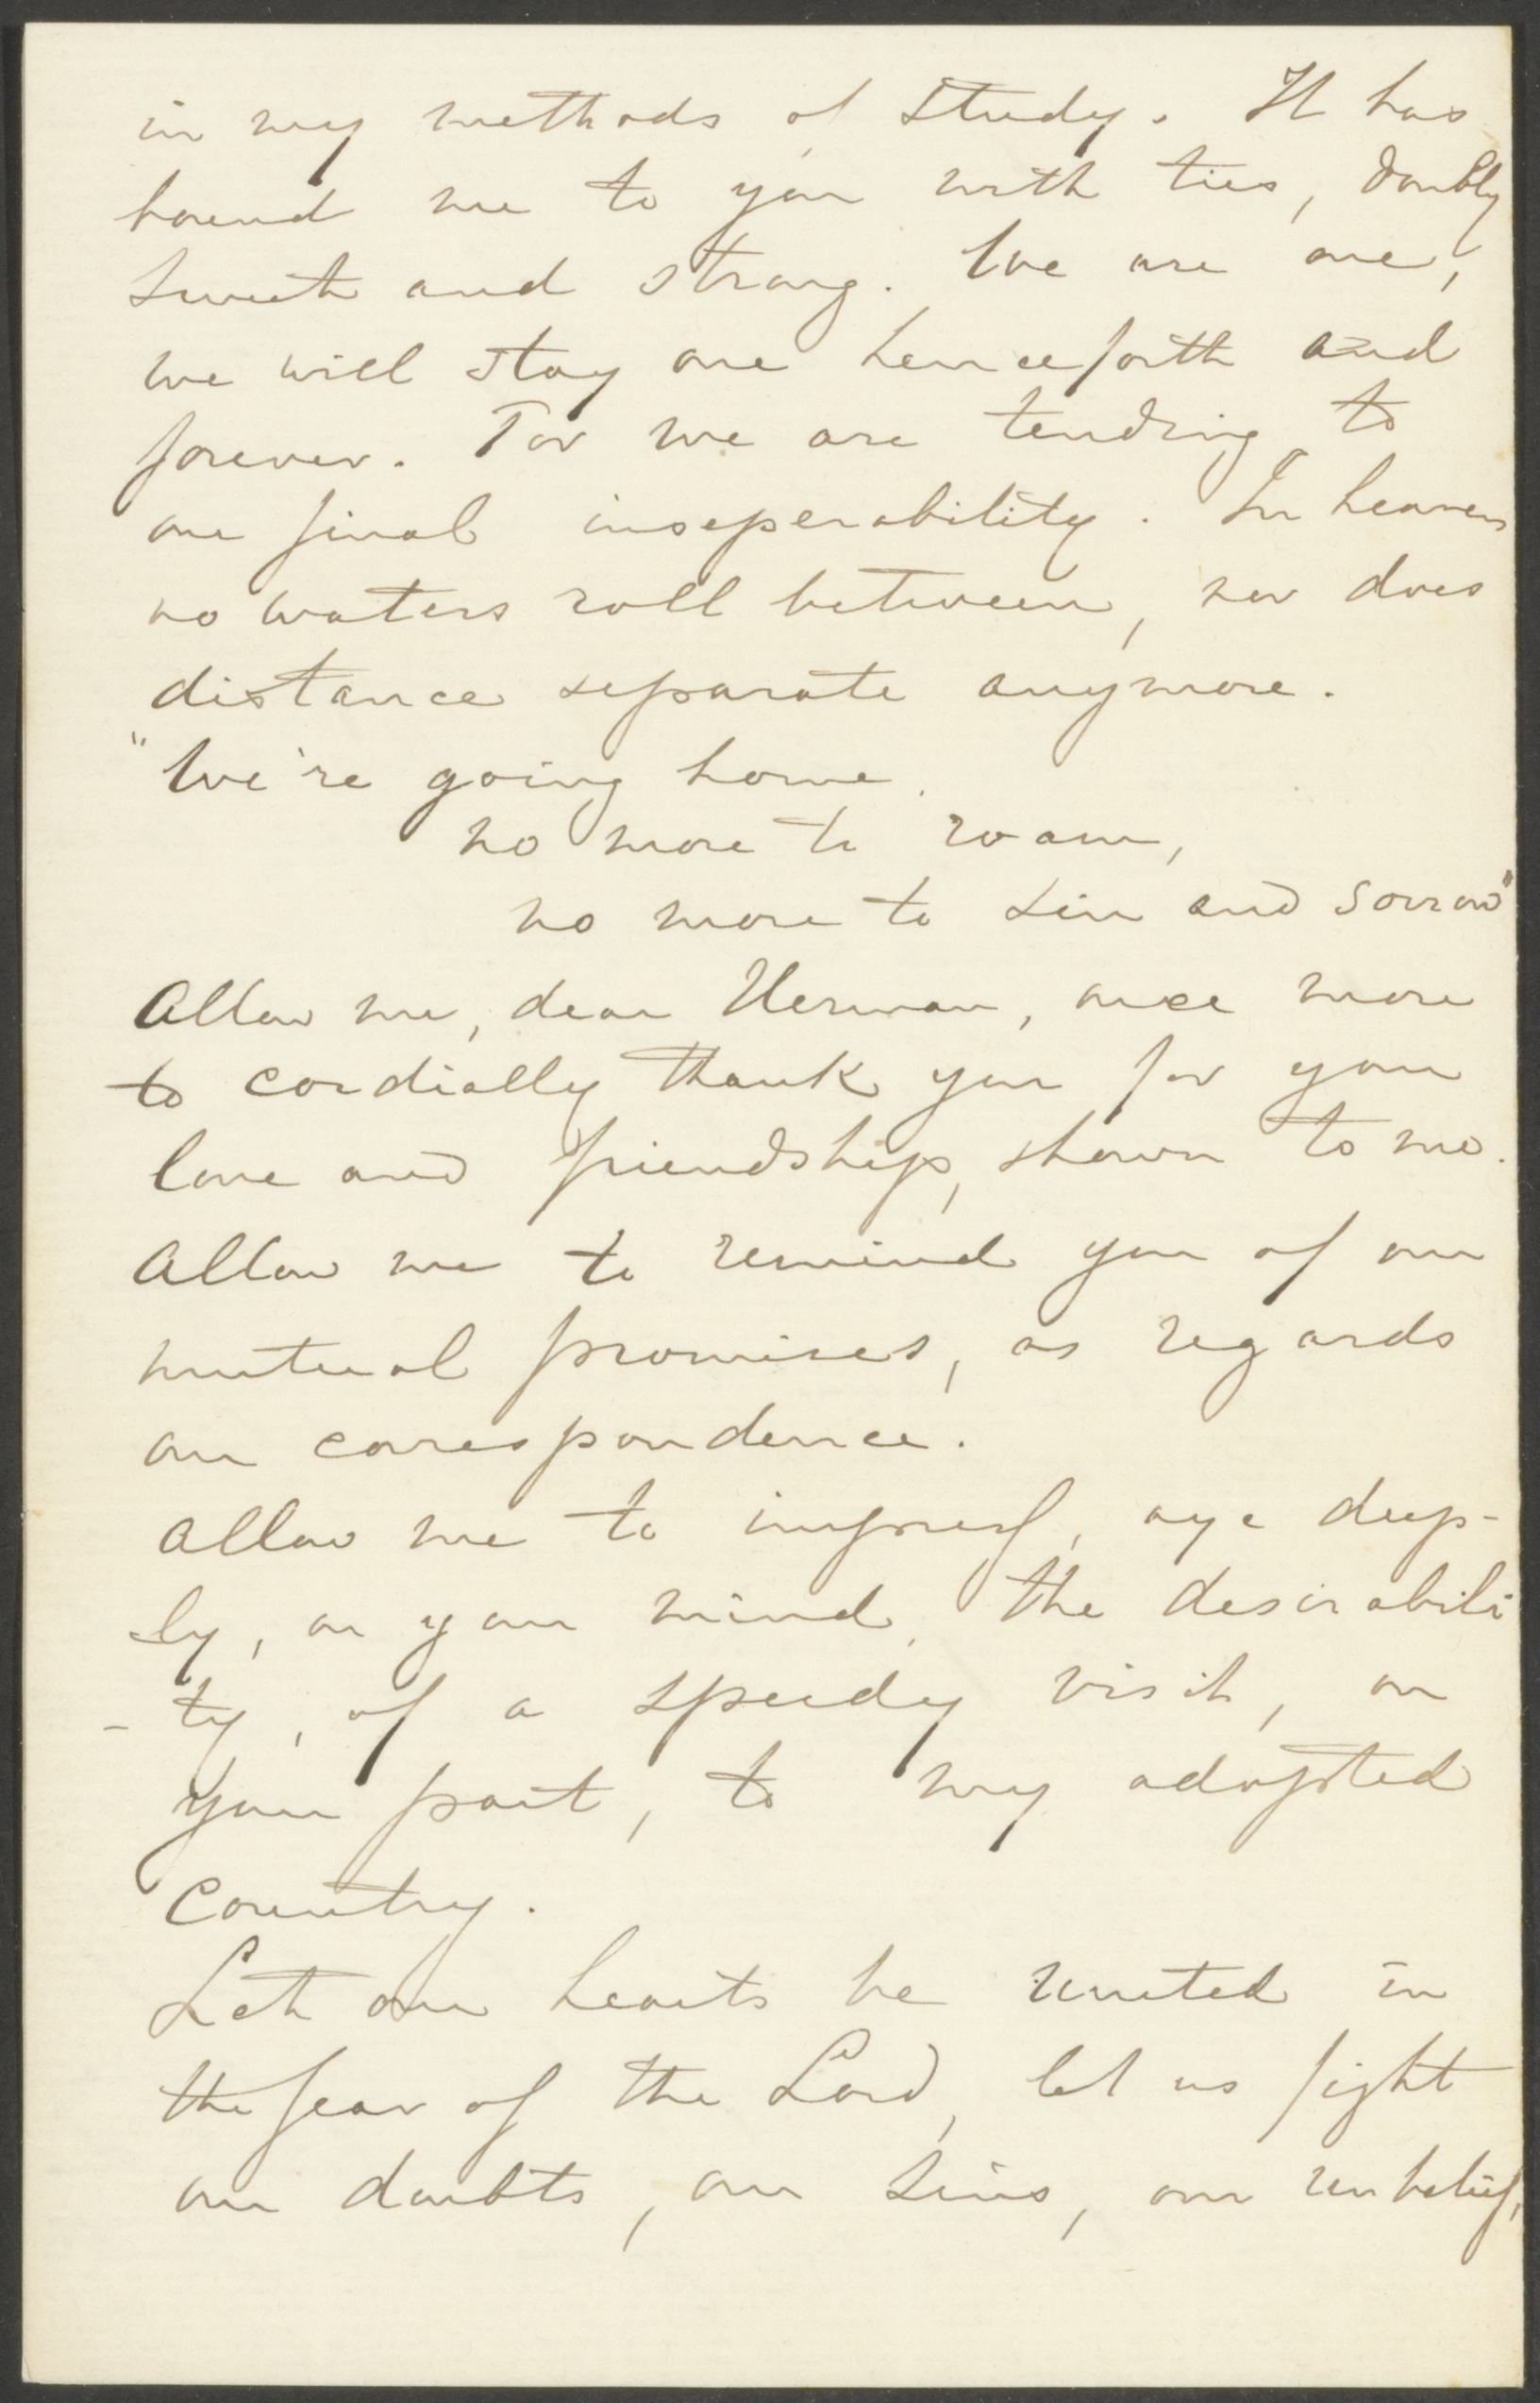 in my methods of study. It has
bound me to you with ties, doubly
sweet and strong. We are one,
we will stay one henceforth and
forever. For we are tending to
one final inseperability. In heaven
no waters roll between, nor does
distance separate anymore.
"We're going home
no more to roam,
no more to sin and sorrow"
Allow me, dear Herman, once more
to cordially thank you for your
love and friendship, shown to me.
Allow me to remind you of our
mutual promises, as regards
our corespondence.
Allow me to impress, aye deep-
ly, on your mind, the desirabili
-ty, of a speedy visit, on
your part, to my adopted
Country.
Let our hearts be united in
the fear of the Lord, let us fight
our doubts, our sins, our unbelief,